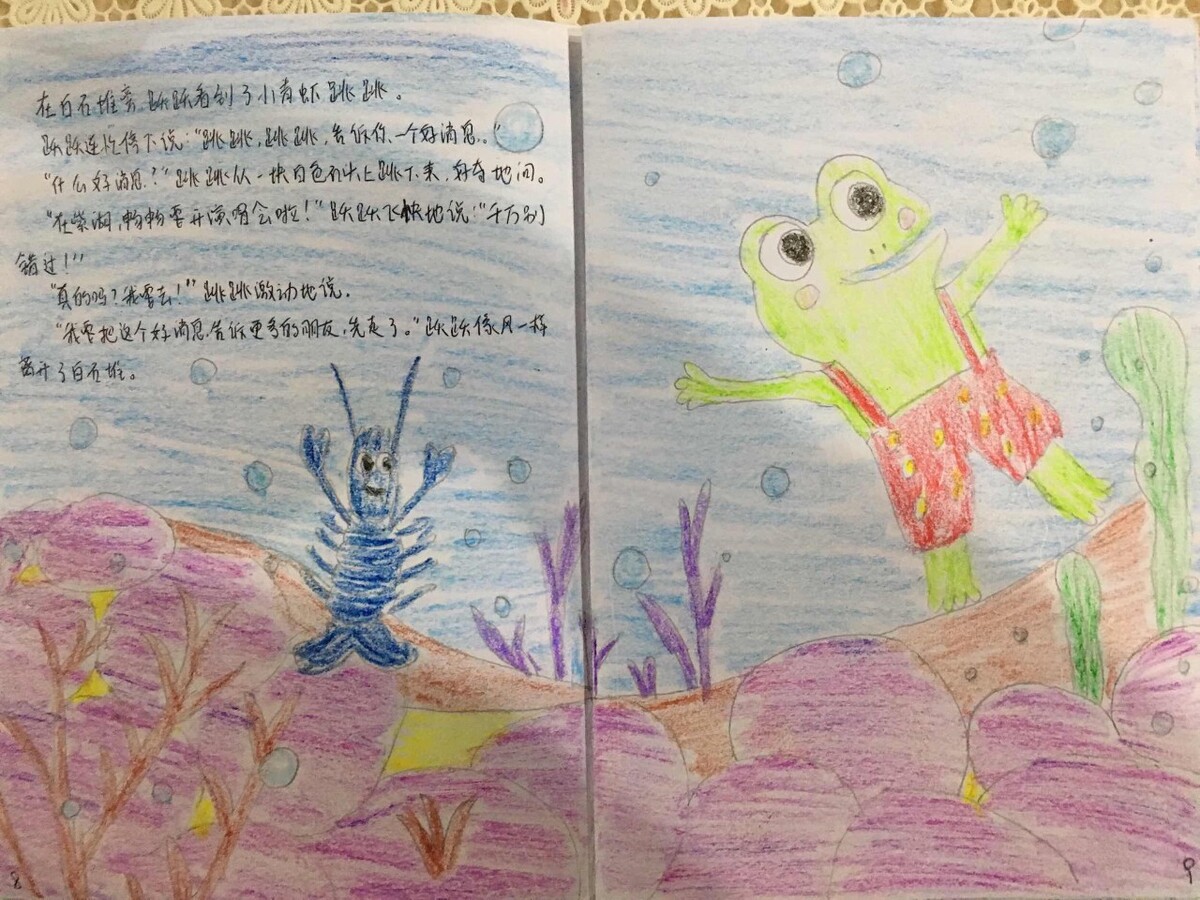 在白石堆旁,跃跃看到了小青虾跳跳。
跃跃连忙停下说:“跳跳,跳跳,告诉你一个好消息。”
“什么好消息?”跳跳从一块白色石头上跳下来,好奇地问。
“在紫湖,畅畅要开演唱会啦!”跃跃飞快地说:“千万别
错过!”
“真的吗?我要去!”跳跳激动地说.
“我要把这个好消息告诉更多的朋友,先走了。”跃跃像风一样
离开了白石堆。
8
9